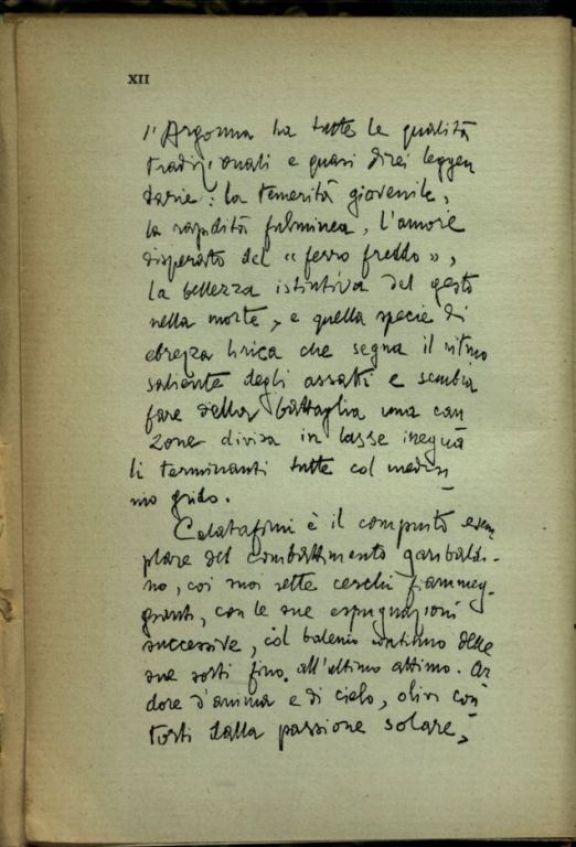 XII
l'Argonna ha tutte le qualità
tradizionali e quasi direi leggen
darie: la temerità giovenile,
la rapidità fulminea, l'amore
disperato del « ferro freddo »,
la bellezza istintiva del gesto
nella morte, e quella specie di
ebrezza lirica che segna il ritmo
saliente degli assalti e sembra
fare della battaglia una can
zone divisa in lasse inegua
li terminanti tutte col medesi
mo grido.
Calatafimi è il compiuto esem
plare del combattimento garibaldi-
no, coi suoi sette cerchi fiammeg-
gianti, con le sue espugnazioni
successive, col baleno continuo delle
sue sorti fino all'ultimo attimo. Ar
dore d'anima e di cielo, olivi con
torti dalla passione solare,